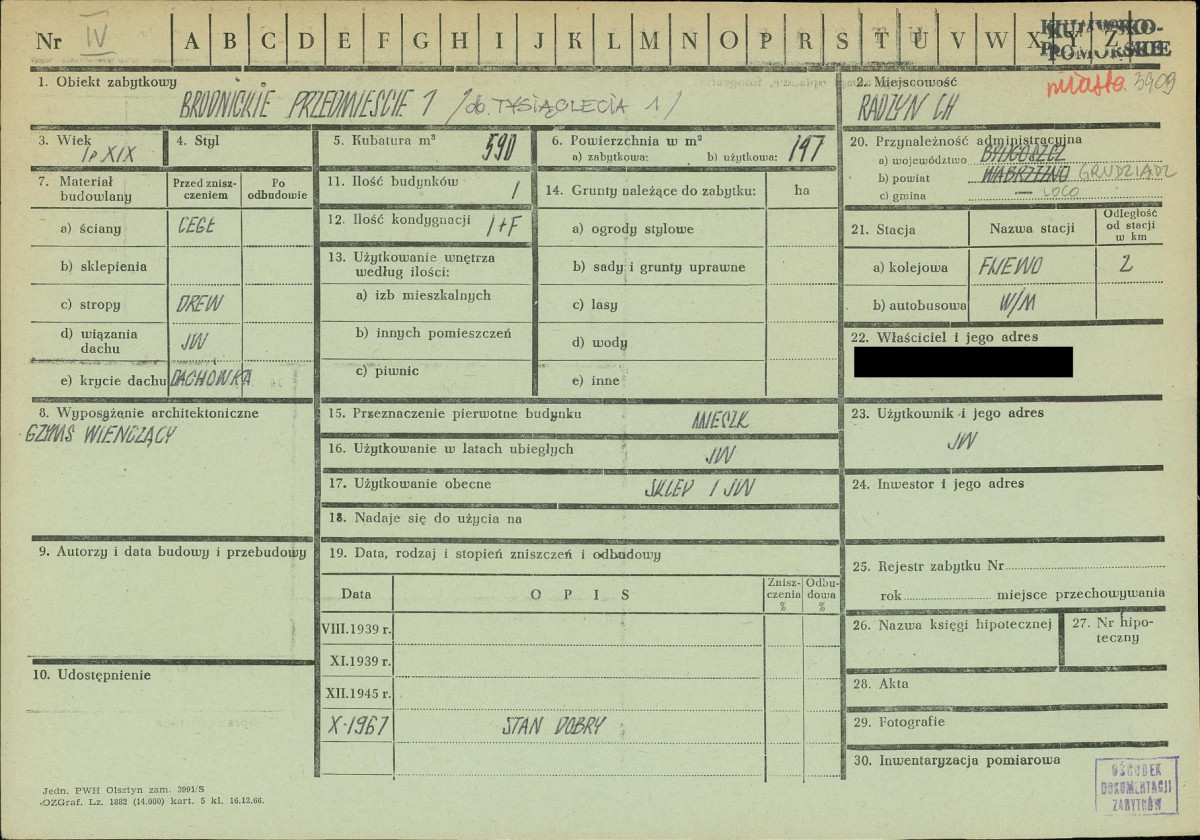 Nr IV A B C D E F G H I J K L M N O P R S T U V W X Y Z
KUJAWSKO-
POMORSKIE
miasto 3909
1. Obiekt zabytkowy
BRODNICKIE PRZEDMIEŚCIE 1 /ob. TYSIĄCLECIA 1/
2. Miejscowość
RADZYŃ CH
3. Wiek
I p XIX
4. Styl
5. Kubatura m³ 590
6. Powierzchnia w m²
a) zabytkowa: b) użytkowa: 197
20. Przynależność administracyjna
a) województwo BYDGOSZCZ
b) powiat WĄBRZEŹNO GRUDZIĄDZ
c) gmina — LOCO
7. Materiał budowlany
Przed zniszczeniem
Po odbudowie
a) ściany CEGŁ
b) sklepienia
c) stropy DREW
d) wiązania dachu JW
e) krycie dachu DACHÓWKA
11. Ilość budynków 1
12. Ilość kondygnacji 1+F
13. Użytkowanie wnętrza
według ilości:
a) izb mieszkalnych
b) innych pomieszczeń
c) piwnic
14. Grunty należące do zabytku: ha
a) ogrody stylowe
b) sady i grunty uprawne
c) lasy
d) wody
e) inne
21. Stacja Nazwa stacji Odległość od stacji w km
a) kolejowa FIJEWO 2
b) autobusowa W/M
22. Właściciel i jego adres
8. Wyposążenie architektoniczne
GZYMS WIEŃCZĄCY
15. Przeznaczenie pierwotne budynku MIESZK
16. Użytkowanie w latach ubiegłych JW
17. Użytkowanie obecne SKLEP I JW
18. Nadaje się do użycia na
23. Użytkownik i jego adres
JW
24. Inwestor i jego adres
9. Autorzy i data budowy i przebudowy
19. Data, rodzaj i stopień zniszczeń i odbudowy
Data O P I S Zniszczenia % Odbudowa %
VIII.1939 r.
XI.1939 r.
XII.1945 r.
X-1967 STAN DOBRY
25. Rejestr zabytku Nr
rok miejsce przechowywania
26. Nazwa księgi hipotecznej
27. Nr hipoteczny
10. Udostępnienie
28. Akta
29. Fotografie
30. Inwentaryzacja pomiarowa
OŚRODEK
DOKUMENTACJI
ZABYTKÓW
Jedn. PWH Olsztyn zam. 3991/S
OZGraf. Lz. 1882 (14.000) kart. 5 kl. 16.12.66.